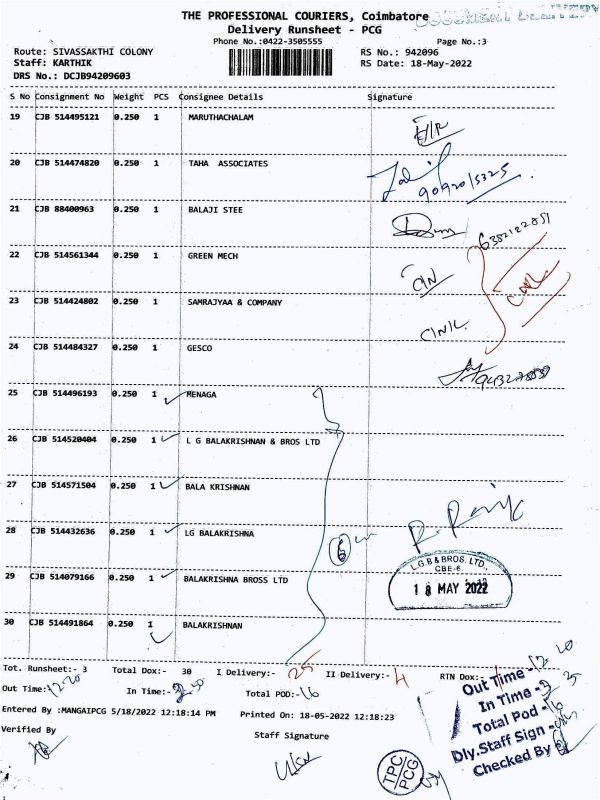 THE PROFESSIONAL COURIERS, Coimbatore
Delivery Runsheet - PCG
Phone No.:0422-3505555 Page No.:3
Route: SIVASSAKTHI COLONY RS No.: 942096
Staff: KARTHIK RS Date: 18-May-2022
DRS No.: DCJB94209603
S No Consignment No Weight PCS Consignee Details Signature
19 CJB 514495121 0.250 1 MARUTHACHALAM
20 CJB 514474820 0.250 1 TAHA ASSOCIATES
9092015325
21 CJB 88400963 0.250 1 BALAJI STEE
22 CJB 514561344 0.250 1 GREEN MECH
23 CJB 514424802 0.250 1 SAMRAJYAA & COMPANY
24 CJB 514484327 0.250 1 GESCO
25 CJB 514496193 0.250 1 MENAGA
26 CJB 514520404 0.250 1 L G BALAKRISHNAN & BROS LTD
27 CJB 514571504 0.250 1 BALA KRISHNAN
28 CJB 514432636 0.250 1 LG BALAKRISHNA
L.G.B & BROS. LTD.
CBE-6.
29 CJB 514079166 0.250 1 BALAKRISHNA BROSS LTD
18 MAY 2022
30 CJB 514491864 0.250 1 BALAKRISHNAN
Tot. Runsheet:- 3 Total Dox:- 30 I Delivery:- 25 II Delivery:- 4 RTN Dox:-
Out Time: 12.20 In Time:- Total POD:- 16
Entered By :MANGAIPCG 5/18/2022 12:18:14 PM Printed On: 18-05-2022 12:18:23
Verified By Staff Signature
Out Time - 12 20
In Time -
Total Pod - 16
Dly.Staff Sign -
Checked By
TPC
PCG